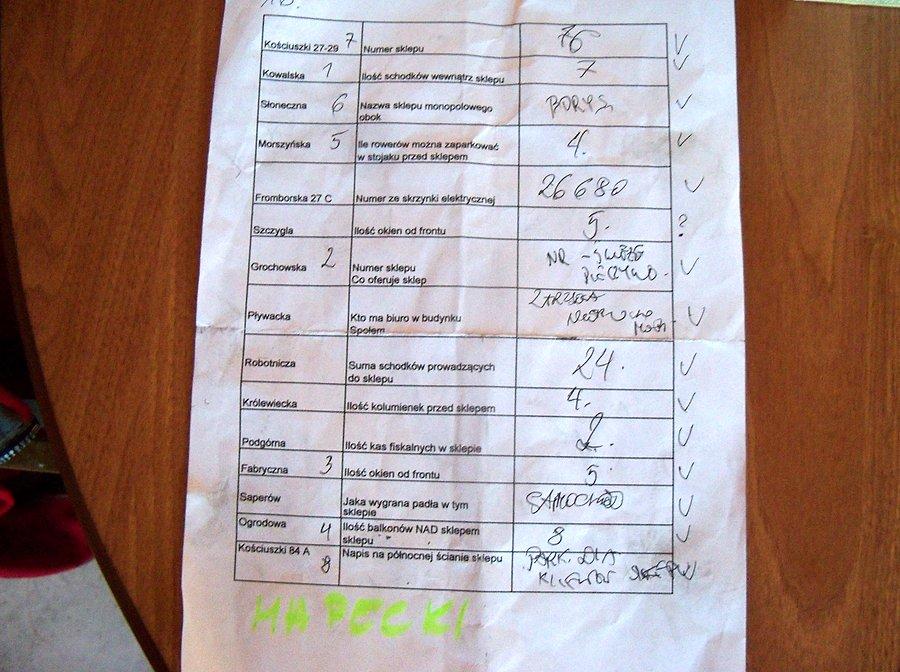 Kościuszki 27-29 7 Numer sklepu 76 V
Kowalska 1 Ilość schodków wewnątrz sklepu 7 V
Słoneczna 6 Nazwa sklepu monopolowego BORYS V
obok
Morszyńska 5 Ile rowerów można zaparkować 4. V
w stojaku przed sklepem
Fromborska 27 C Numer ze skrzynki elektrycznej 26680 V
Szczygla Ilość okien od frontu 5. ?
Grochowska 2 Numer sklepu NR - ŚWIEŻE V
Co oferuje sklep PIECZYWO.
Pływacka Kto ma biuro w budynku V
Społem
Robotnicza Suma schodków prowadzących 24. V
do sklepu
Królewiecka Ilość kolumienek przed sklepem 4. V
Podgórna Ilość kas fiskalnych w sklepie 2. V
Fabryczna 3 Ilość okien od frontu 5. V
Saperów Jaka wygrana padła w tym SAMOCHÓD V
sklepie
Ogrodowa 4 Ilość balkonów NAD sklepem 8 V
sklepu
Kościuszki 84 A 8 Napis na północnej ścianie sklepu PARK. DLA
KLIENTÓW SKLEPU V
HAPECKI